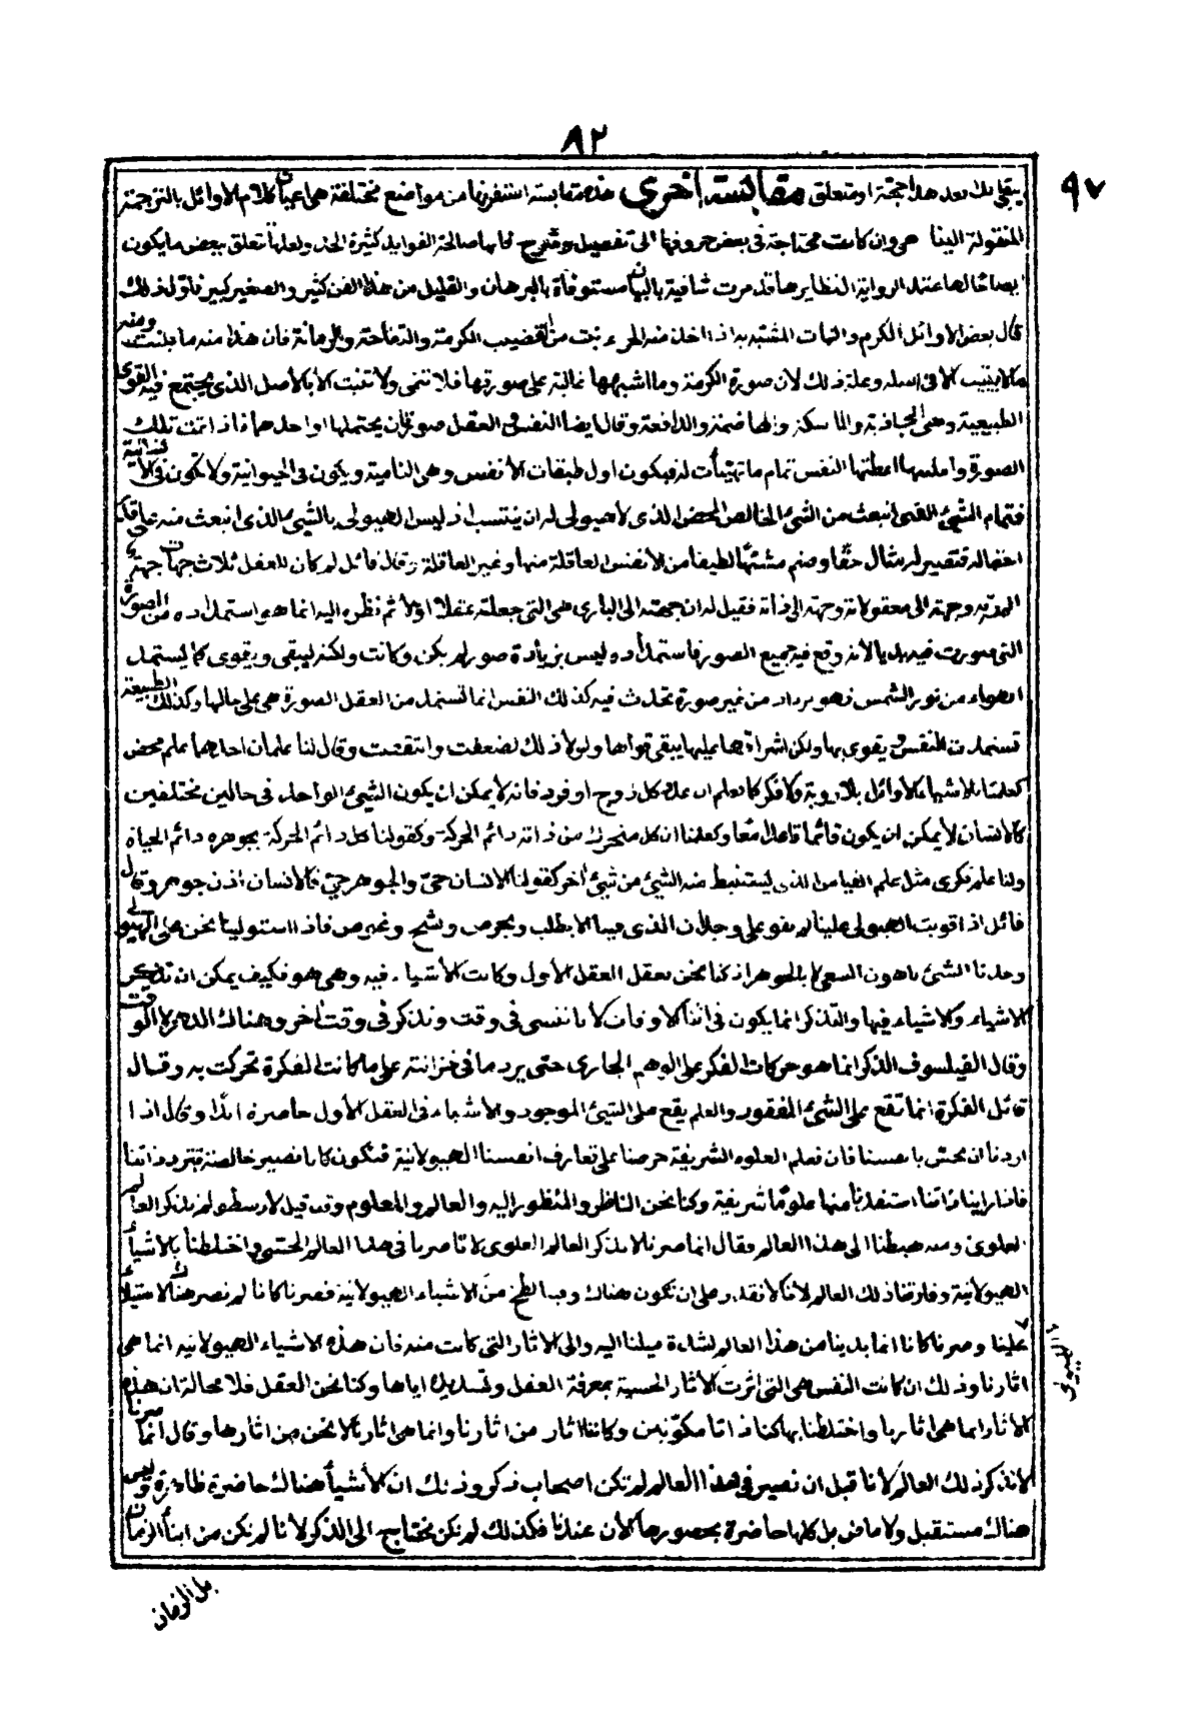 ٨٢
٩٧
يبقى بك بعد هذا حجة او متعلق مقابسة اخرى هذه مقابسة استفرزتها من مواضع مختلفة هى عيبات كلام الاوائل بالترجمة
المنقولة الينا هى وان كانت محتاجة فى بعض حروفها الى تفصيل وشرح فانها صالحة الفوايد كثيرة الجد ولعلها تعلق ببعض ما يكون
ايضاحا لها عند الرواية لنظايرها قد مرت شافية بالبيان مستوفاة بالبرهان والقليل من هذا الفن كثير والصغير كبير ناول ذلك
قال بعض الاوائل الكرم والنبات المشتبه به اذا اخذ منه الجزء نبت من القضيب الكرمة والتفاحة والرمانة فان هذا منه ما ينبت ومنه
مالا ينبت الا فى اصله وعلة ذلك لان صورة الكرمة وما اشبهها غالبة على صورتها فلا تنمى ولا تنبت الا بالاصل الذى يجتمع فيه القوى
الطبيعية وهى الجاذبة والماسكة والهاضمة والدافعة وقال ايضا النفس فى العقل صورتان يحتملها او احدهما فاذا اتت تلك
الصورة واملسها اعطتها النفس تمام ما تهيئات له فيكون اول طبقات الانفس وهى النامية ويكون فى الحيوانية ولا تكون فى الا
فتمام الشيئ القنى انبعث من الشيئ الخالص المحض الذى لا هيولى له ان ينتسب اذ ليس الهيولى بالشيئ الذى انبعث منه على
افضاله فتصير له مثال حقا وصنم مشتبها لطيفا من الانفس العاقلة منها وغير العاقلة وقال قائل لم كان للعقل ثلاث جهات جهة
البدئه وجهة الى معقولاته وجهة الى ذاته فقيل له ان جهته الى البارى هى التى جعلته عقلا اولا ثم نظره اليه انما هو استمداده من الصورة
التى صورت فيه بديا لانه وقع فيه جميع الصور فاستمداده ليس بزيادة صور لم يكن وكانت ولكنه ليبقى ويقوى كما يستمد
الهواء من نور الشمس فهو يرداد من غير صورة تحدث فيه كذلك النفس انما تستمد من العقل الصورة هى على حالها وكذلك الطبيعة
تستمد من النفس يقوى بها ولكن اشراقها عليها يبقى قواها ولولا ذلك لضعفت وانتقصت وقال لنا علمان احدهما علم محض
كعلمنا بالاشياء الاوائل بلا روية ولا فكر كما نعلم ان عدد كل زوج او فرد فانه لا يمكن ان يكون الشيئ الواحد فى حالين مختلفين
كالانسان لا يمكن ان يكون قائما قاعدا معا وكعلمنا ان كل متحرك من ذاته دائم الحركة وكقولنا كل دائم الحركة بجوهره دائم الحياة
ولنا علم فكرى مثل علم القياس الذى يستنبط منه الشيئ من شيئ أخر كقولنا الانسان حى والجوهر حى فالانسان اذن جوهر وقال
قائل اذا قويت الهيولى علينا لم نقو على وجدان الذى فينا الا بطلب وبحرص وشح وغيرص فاذا استولينا نحن على الهيولى
وجدنا الشيئ باهون السعى لا بالجوهر اذ كنا نحن نعقل العقل الأول وكانت الأشياء فيه وهى هو فكيف يمكن ان تذكر
الاشياء والاشياء فيها والتذكر انما يكون فى اننا لاوقات لانا ننسى فى وقت ونذكر فى وقت أخر وهناك الدهر لا الوقت
وقال الفيلسوف الذكر انما هو حركات الفكر على الوهم الجارى حتى يرد ما فى خزانته على ما كانت الفكرة تحركت به وقال
قائل الفكرة انما تقع على الشيئ المفقود والعلم يقع على الشيئ الموجود والاشياء فى العقل الأول حاضرة ابدا وقال اذا
اردنا ان نحس بانفسنا فان نعلم العلوم الشريفة حرصنا على تعارف انفسنا الهيولانية فتكون كانا نصير خالصة بتردد ذاتنا
فاذا راينا ذاتنا استفدنا منها علوما شريفة وكنا نحن الناظر والمنظور إليه والعالم والمعلوم وقد قيل لارسطو لم لم نذكر العالم
العلوى ومنه هبطنا الى هذا العالم وقال انما صرنا لا نذكر العالم العلوى لانا صرنا فى هذا العالم الحسى واختلطنا بالاشياء
الهيولانية وفارقنا ذلك العالم لانا لا نقدر على ان نكون هناك وبنا لطخ من الاشياء الهيولانية فصرنا كانا لم نصر هناك لاستيلاء
علينا وصرنا كانا انما بدينا من هذا العالم لشدة ميلنا اليه والى الاثار التى كانت منه فان هذه الاشياء الهيولانية انما هى
اثارنا وذلك ان كانت النفس هى التى اثرت الأثار الحسية بمعرفة العقل وتسديده اياها وكنا نحن العقل فلا محالة ان هذه
الاثار انما هى اثارنا واختلطنا بها كنا ذاتا مكونين وكانت اثار من اثارنا وانما هى اثارنا لا نحن من اثارها وقال انما صرنا
لا نذكر ذلك العالم لانا قبل ان نصير فى هذا العالم لم تكن اصحاب ذكر وذلك ان الأشيأ هناك حاضرة ظاهرة وليس
هناك مستقبل ولا ماض بل كلها حاضرة بحضورها الان عندنا فكذلك لم نكن نحتاج الى الذكر لانا لم نكن من ابنأ الزمان
الهيولى
بل الزمان